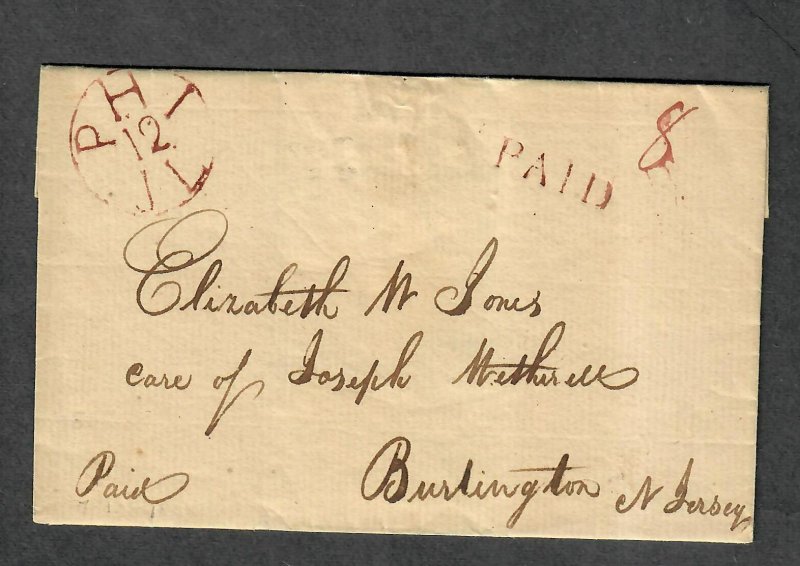 PHI
12
JL
PAID
8
Elizabeth W Jones
care of Joseph Wetherell
Paid
Burlington N Jersey